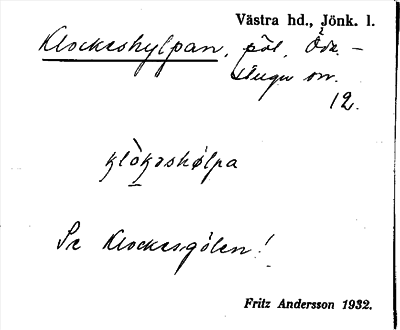 Västra hd., Jönk. l.
Klockeshylpan, pöl, Öde-
stugu sn.
12.
klòkəshølpa
Se Klockesgölen!
Fritz Andersson 1932.